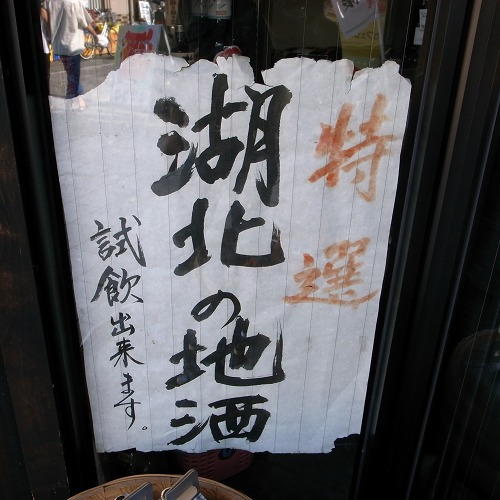 特選
湖北の地酒
試飲出来ます。